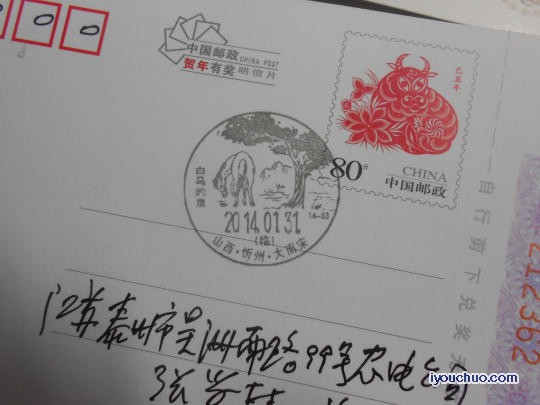 0 0 0
中国邮政 CHINA POST
贺年有奖明信片
己丑年
80分
CHINA
中国邮政
白马趵泉
2014.01.31
14-03
(临)
山西·忻州·大南宋
自行剪下兑奖无
212362
江苏泰州市吴洲南路99号农电公司
张
iyouchuo.com